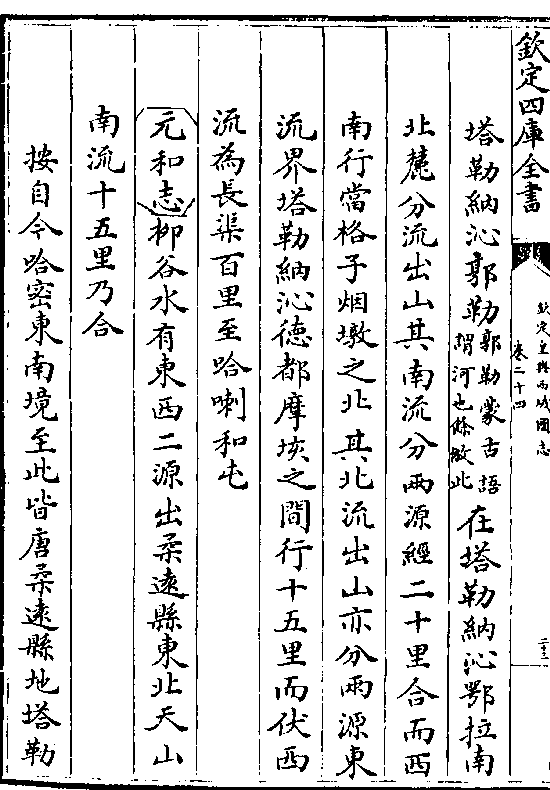 欽定四庫全書
欽定皇輿西域圖志
卷二十四
塔勒納沁郭勒郭勒蒙古語謂河也餘倣此在塔勒納沁鄂拉南
北麓分流出山其南流分兩源經二十里合而西
南行當格子烟墩之北其北流出山亦分兩源東
流界塔勒納沁德都摩垓之間行十五里而伏西
流為長渠百里至哈喇和屯
元和志柳谷水有東西二源出柔遠縣東北天山
南流十五里乃合
按自今哈密東南境至此皆唐柔遠縣地塔勒